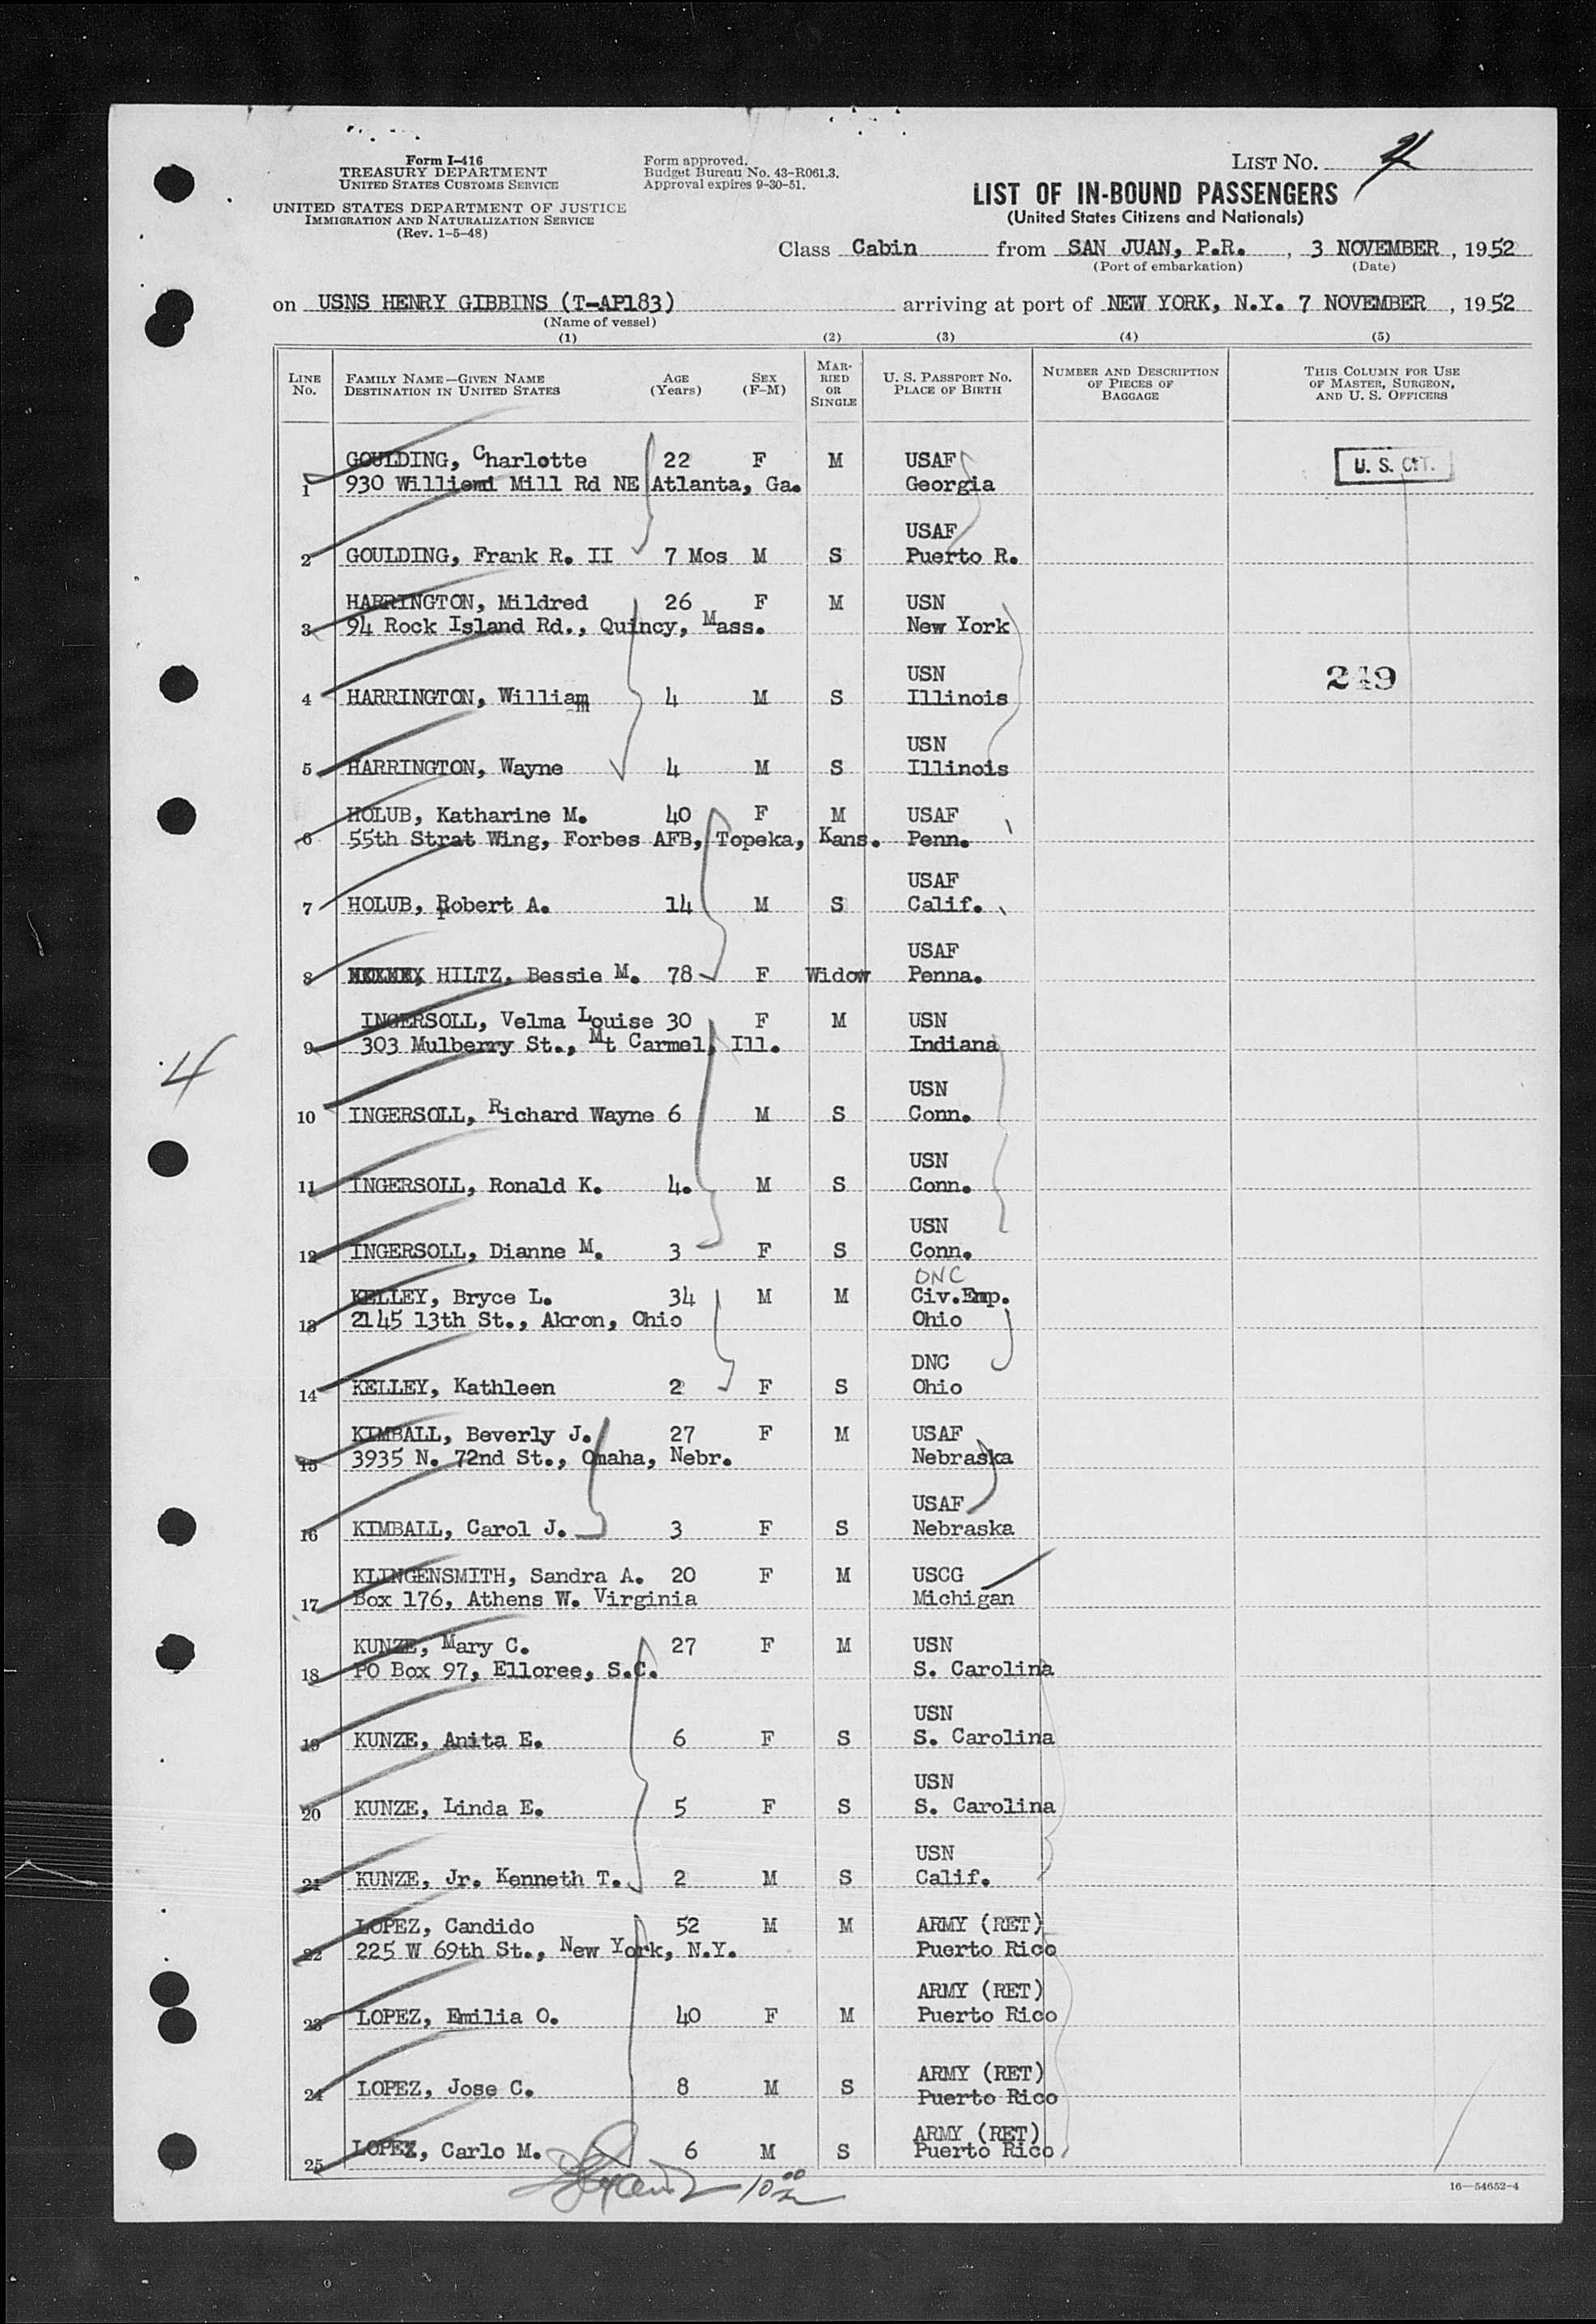 Form I-416
TREASURY DEPARTMENT
UNITED STATES CUSTOMS SERVICE
UNITED STATES DEPARTMENT OF JUSTICE
IMMIGRATION AND NATURALIZATION SERVICE
(Rev. 1-5-48)
Form approved.
Budget Bureau No. 43-R061.3.
Approval expires 9-30-51.
LIST NO.
LIST OF IN-BOUND PASSENGERS
(United States Citizens and Nationals)
Class Cabin from SAN JUAN, P.R., 3 NOVEMBER, 1952
(Port of embarkation) (Date)
on USNS HENRY GIBBINS (T-AP183) arriving at port of NEW YORK, N.Y. 7 NOVEMBER, 1952
(Name of vessel)
(1) (2) (3) (4) (5)
LINE NO. FAMILY NAME—GIVEN NAME DESTINATION IN UNITED STATES AGE (Years) SEX (F-M) MARRIED OR SINGLE U. S. PASSPORT NO. PLACE OF BIRTH NUMBER AND DESCRIPTION OF PIECES OF BAGGAGE THIS COLUMN FOR USE OF MASTER, SURGEON, AND U. S. OFFICERS
GOULDING, Charlotte 22 F M USAF U. S. CIT.
1 930 Mill Rd NE Atlanta, Ga. Georgia
USAF
2 GOULDING, Frank R. II 7 Mos M S Puerto R.
HARRINGTON, Mildred 26 F M USN
3 94 Rock Island Rd., Quincy, Mass. New York
USN 249
4 HARRINGTON, William 4 M S Illinois
USN
5 HARRINGTON, Wayne 4 M S Illinois
HOLUB, Katharine M. 40 F M USAF
6 55th Strat Wing, Forbes AFB, Topeka, Kans. Penn.
USAF
7 HOLUB, Robert A. 14 M S Calif.
USAF
8 HILTZ, Bessie M. 78 F Widow Penna.
INGERSOLL, Velma Louise 30 F M USN
9 303 Mulberry St., Mt Carmel, Ill. Indiana
4
USN
10 INGERSOLL, Richard Wayne 6 M S Conn.
USN
11 INGERSOLL, Ronald K. 4. M S Conn.
USN
12 INGERSOLL, Dianne M. 3 F S Conn.
DNC
KELLEY, Bryce L. 34 M M Civ.Emp.
13 2145 13th St., Akron, Ohio Ohio
DNC
14 KELLEY, Kathleen 2 F S Ohio
KIMBALL, Beverly J. 27 F M USAF
15 3935 N. 72nd St., Omaha, Nebr. Nebraska
USAF
16 KIMBALL, Carol J. 3 F S Nebraska
KLINGENSMITH, Sandra A. 20 F M USCG
17 Box 176, Athens W. Virginia Michigan
KUNZE, Mary C. 27 F M USN
18 PO Box 97, Elloree, S.C. S. Carolina
USN
19 KUNZE, Anita E. 6 F S S. Carolina
USN
20 KUNZE, Linda E. 5 F S S. Carolina
USN
21 KUNZE, Jr. Kenneth T. 2 M S Calif.
LOPEZ, Candido 52 M M ARMY (RET)
22 225 W 69th St., New York, N.Y. Puerto Rico
ARMY (RET)
23 LOPEZ, Emilia O. 40 F M Puerto Rico
ARMY (RET)
24 LOPEZ, Jose C. 8 M S Puerto Rico
ARMY (RET)
25 LOPEZ, Carlo M. 6 M S Puerto Rico
16—54652-4